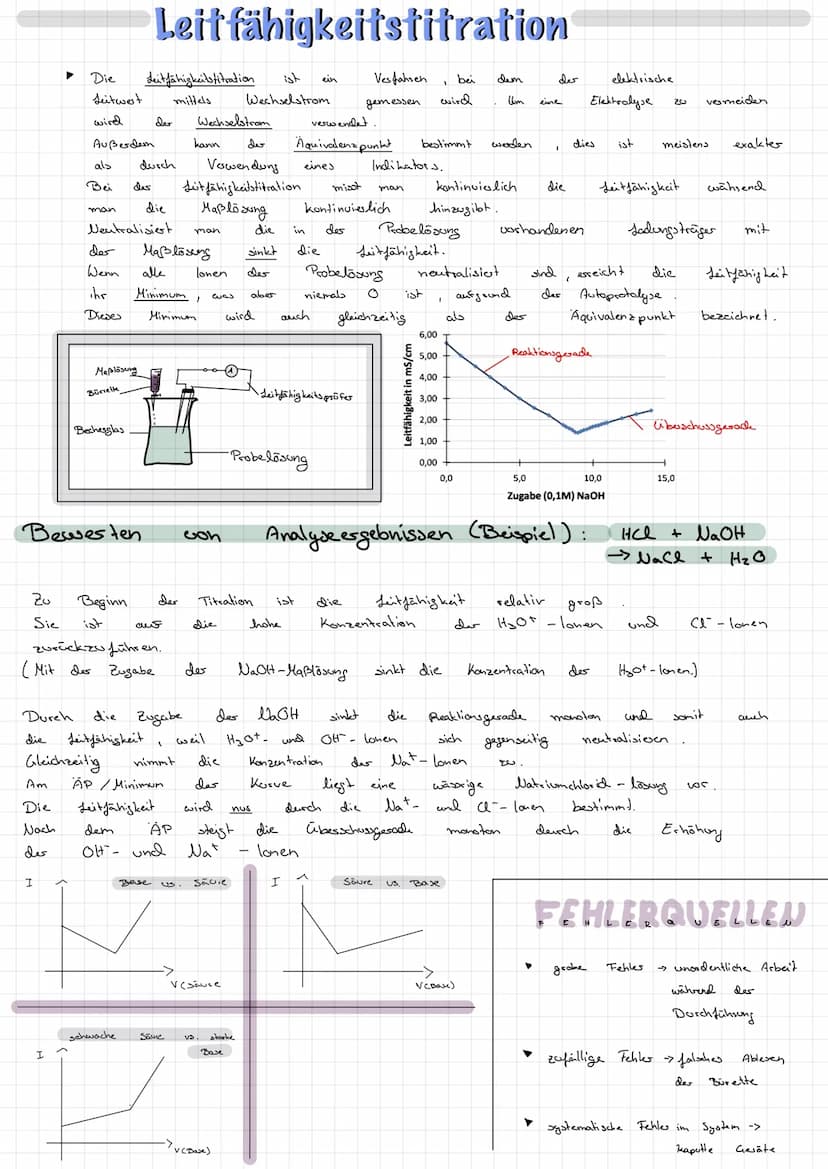 Leitfähigkeitstitration
▸ Die Leitfähigkeitstitration ist ein Verfahren, bei dem der elektrische
Leitwert mittels Wechselstrom gemessen wird. Um eine Elektrolyse zu vermeiden
wird der Wechselstrom verwendet.
Außerdem kann der Äquivalenzpunkt bestimmt werden, dies ist meistens exakter
als durch Verwendung eines Indikators.
Bei der Leitfähigkeitstitration misst man kontinuierlich die Leitfähigkeit während
man die Maßlösung kontinuierlich hinzugibt.
Neutralisiert man die in der Probelösung vorhandenen Ladungsträger mit
der Maßlösung sinkt die Leitfähigkeit.
Wenn alle Ionen der Probelösung neutralisiert sind, erreicht die Leitfähigkeit
ihr Minimum, was aber niemals 0 ist, aufgrund der Autoprotolyse.
Dieses Minimum wird auch gleichzeitig als der Äquivalenzpunkt bezeichnet.
Maßlösung
Bürette
A
Leitfähigkeitsprüfer
Becherglas
Probelösung
Leitfähigkeit in mS/cm
6,00
5,00
4,00
3,00
2,00
1,00
0,00
Reaktionsgerade
Überschussgerade
0,0 5,0 10,0 15,0
Zugabe (0,1M) NaOH
Bewerten von Analyseergebnissen (Beispiel): HCl + NaOH
→ NaCl + H₂O
Zu Beginn der Titration ist die Leitfähigkeit relativ groß.
Sie ist auf die hohe Konzentration der H₃O⁺-Ionen und Cl⁻-Ionen
zurückzuführen.
(Mit der Zugabe der NaOH-Maßlösung sinkt die Konzentration der H₃O⁺-Ionen.)
Durch die Zugabe der NaOH sinkt die Reaktionsgerade monoton und somit auch
die Leitfähigkeit, weil H₃O⁺- und OH⁻-Ionen sich gegenseitig neutralisieren.
Gleichzeitig nimmt die Konzentration der Na⁺-Ionen zu.
Am ÄP/Minimum der Kurve liegt eine wässrige Natriumchlorid-lösung vor.
Die Leitfähigkeit wird nur durch die Na⁺- und Cl⁻-Ionen bestimmt.
Nach dem ÄP steigt die Überschussgerade monoton durch die Erhöhung
der OH⁻- und Na⁺-Ionen
I
Base vs. Säure
V(Säure
I
Säure vs. Base
V(Base)
schwache Säure vs. starke
Base
I
V(Base)
FEHLERQUELLEN
FEHLERQUELLEN
▾ grobe Fehler → unordentliche Arbeit
während der
Durchführung
▾ zufällige Fehler → falsches Ablesen
der Bürette
▾ systematische Fehler im System ->
kaputte Geräte